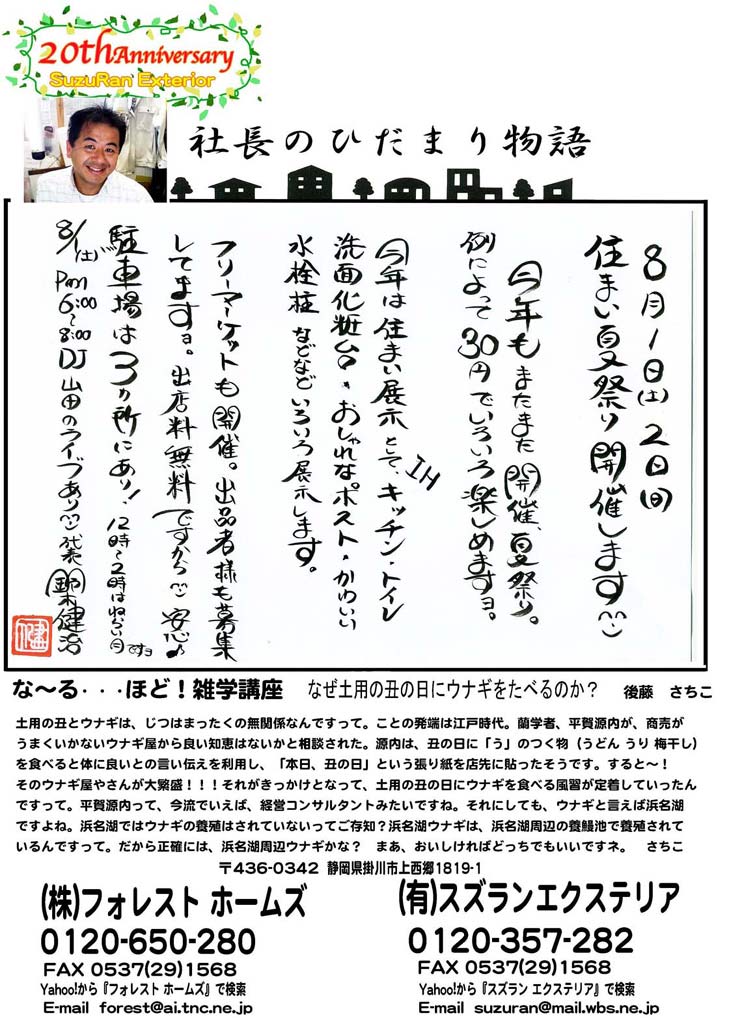 20th Anniversary
SuzuRan Exterior
社長のひだまり物語
8月1日(土)2日(日)
住まい夏祭り開催します^^
今年もまたまた開催、夏祭り。
例によって30円でいろいろ楽しめますョ。
今年は住まい展示として、キッチン・トイレ
IH
洗面化粧台・おしゃれなポスト・かわいい
水栓柱などなどいろいろ展示します。
フリーマーケットも開催。出品者様も募集
してますョ。出店料無料ですから^^安心♪
駐車場は3ヵ所にあり!12時~2時はねらい目ですョ
8/1(土)Pm6:00~8:00DJ山田のライブあり^^代表鈴木健治
な~る・・・ほど!雑学講座 なぜ土用の丑の日にウナギをたべるのか? 後藤 さちこ
土用の丑とウナギは、じつはまったくの無関係なんですって。ことの発端は江戸時代。蘭学者、平賀源内が、商売が
うまくいかないウナギ屋から良い知恵はないかと相談された。源内は、丑の日に「う」のつく物(うどん うり 梅干し)
を食べると体に良いとの言い伝えを利用し、「本日、丑の日」という張り紙を店先に貼ったそうです。すると~!
そのウナギ屋やさんが大繁盛!!!それがきっかけとなって、土用の丑の日にウナギを食べる風習が定着していったん
ですって。平賀源内って、今流でいえば、経営コンサルタントみたいですね。それにしても、ウナギと言えば浜名湖
ですよね。浜名湖ではウナギの養殖はされていないってご存知?浜名湖ウナギは、浜名湖周辺の養鰻池で養殖されて
いるんですって。だから正確には、浜名湖周辺ウナギかな? まあ、おいしければどっちでもいいですネ。 さちこ
〒436-0342 静岡県掛川市上西郷1819-1
(株)フォレスト ホームズ
0120-650-280
FAX 0537(29)1568
Yahoo!から『フォレスト ホームズ』で検索
E-mail forest@ai.tnc.ne.jp
(有)スズランエクステリア
0120-357-282
FAX 0537(29)1568
Yahoo!から『スズラン エクステリア』で検索
E-mail suzuran@mail.wbs.ne.jp